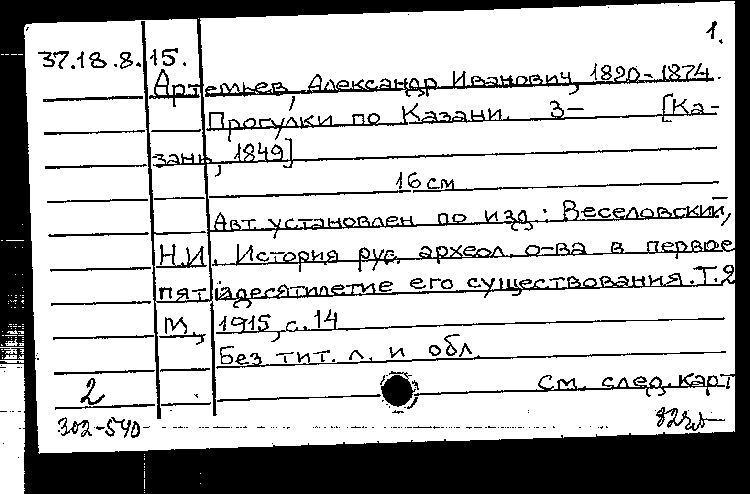 1.
37.18.8.15.
Артемьев, Александр Иванович, 1820-1874.
Прогулки по Казани. 3— [Ка-
зань, 1849]
16 см
Авт. установлен по изд.: Веселовский,
Н.И. История рус. археол. о-ва в первое
пятидесятилетие его существования. Т.2
М., 1915, с. 14
Без тит. л. и обл.
2 См. след. карт
302-540